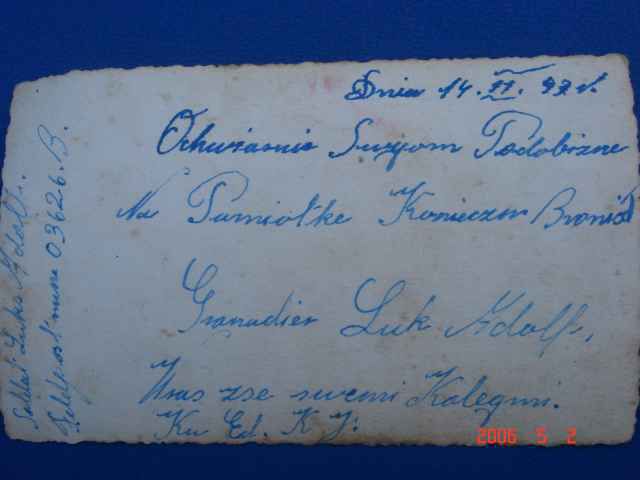 Dnia 14. II. 43 r.
Ochwiarnie Swojom Podobizne
Na Pamiotke Konieczer Bronisł
Granadier Luk Adolf.
Wras zse swemi Kolegmi.
Ku Ed. K J.
Soldat Luks Adolf.
Feldpost num 03626. B.
2006 5 2